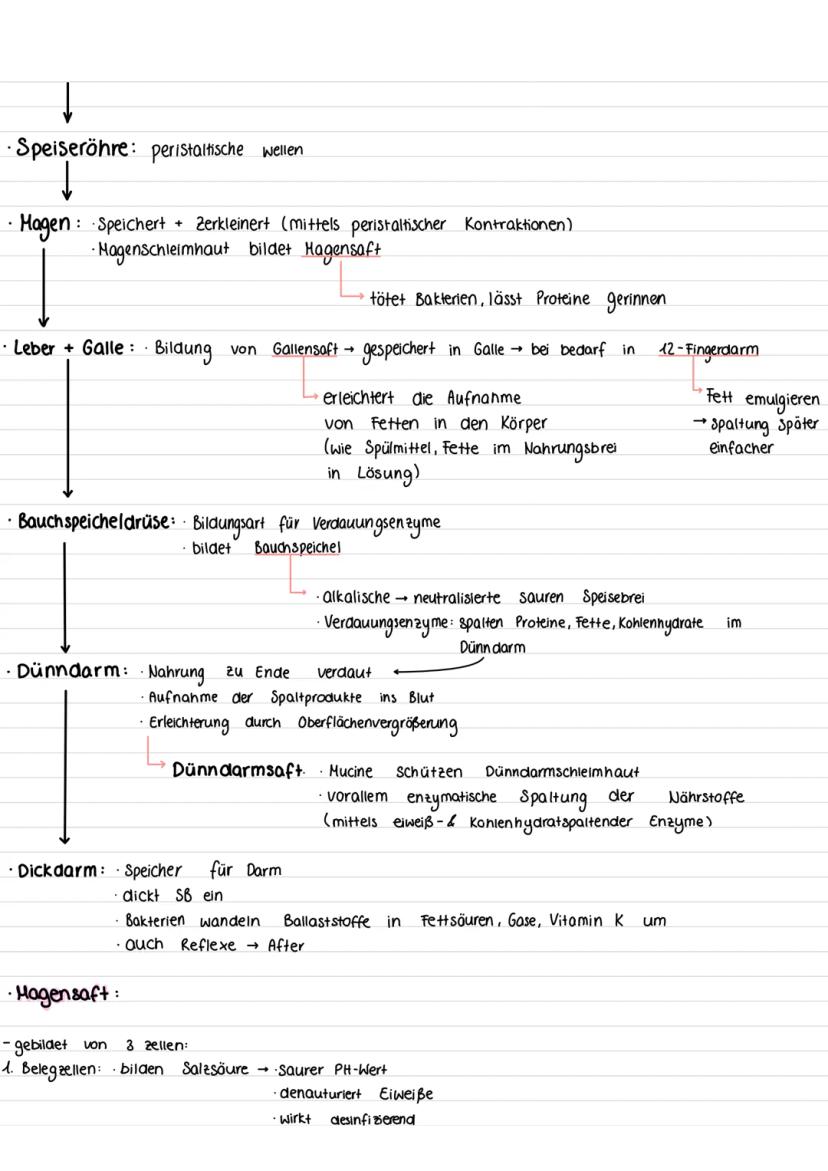 ↓
· Speiseröhre: peristaltische wellen
↓
· Magen: · Speichert + Zerkleinert (mittels peristaltischer Kontraktionen)
· Magenschleimhaut bildet Magensaft
→ tötet Bakterien, lässt Proteine gerinnen
· Leber + Galle: · Bildung von Gallensaft → gespeichert in Galle → bei bedarf in 12-Fingerdarm
→ erleichtert die Aufnahme
von Fetten in den Körper
(wie Spülmittel, Fette im Nahrungsbrei
in Lösung)
→ Fett emulgieren
→ Spaltung Später
einfacher
· Bauchspeicheldrüse: · Bildungsart für Verdauungsenzyme
· bildet Bauchspeichel
→ · alkalische → neutralisierte sauren Speisebrei
· Verdauungsenzyme: spalten Proteine, Fette, Kohlenhydrate im
Dünndarm
· Dünndarm: · Nahrung zu Ende verdaut ←
· Aufnahme der Spaltprodukte ins Blut
· Erleichterung durch Oberflächenvergrößerung
→ Dünndarmsaft. · Mucine schützen Dünndarmschleimhaut
· vorallem enzymatische Spaltung der Nährstoffe
(mittels eiweiß- & Kohlenhydratspaltender Enzyme)
· Dickdarm: · Speicher für Darm
· dickt SB ein
· Bakterien wandeln Ballaststoffe in Fettsäuren, Gase, Vitamin K um
· auch Reflexe → After
· Magensaft:
- gebildet von 3 zellen:
1. Belegzellen: · bilden Salzsäure → · saurer PH-Wert
· denauturiert Eiweiße
· wirkt desinfizierend